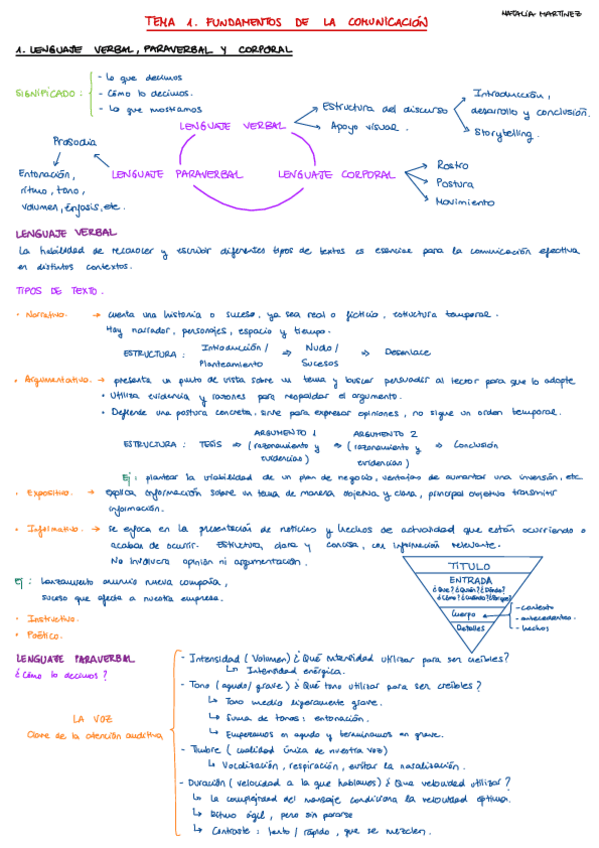 NATALIA MARTÍNEZ
TEMA 1. FUNDAMENTOS DE LA COMUNICACIÓN
1. LENGUAJE VERBAL, PARAVERBAL Y CORPORAL
SIGNIFICADO:
- Lo que decimos
- Cómo lo decimos.
- Lo que mostramos
LENGUAJE VERBAL
Estructura del discurso
Apoyo visual.
Introducción,
desarrollo y conclusión.
Storytelling.
Prosodia
Entonación,
ritmo, tono,
volumen, énfasis, etc.
LENGUAJE PARAVERBAL
LENGUAJE CORPORAL
Rostro
Postura
Movimiento
LENGUAJE VERBAL
La habilidad de reconocer y escribir diferentes tipos de textos es esencial para la comunicación efectiva
en distintos contextos.
TIPOS DE TEXTO.
• Narrativo. → cuenta una historia o suceso, ya sea real o ficticio, estructura temporal.
Hay narrador, personajes, espacio y tiempo.
ESTRUCTURA: Introducción / Planteamiento ⇒ Nudo / Sucesos ⇒ Desenlace
• Argumentativo. → presenta un punto de vista sobre un tema y buscar persuadir al lector para que lo adopte
• Utiliza evidencia y razones para respaldar el argumento.
• Defiende una postura concreta, sirve para expresar opiniones, no sigue un orden temporal.
ESTRUCTURA: TESIS ⇒ ARGUMENTO 1 (razonamiento y evidencias) ⇒ ARGUMENTO 2 (razonamiento y evidencias) ⇒ Conclusión
Ej: plantear la viabilidad de un plan de negocio, ventajas de aumentar una inversión, etc.
• Expositivo. → explica información sobre un tema de manera objetiva y clara, principal objetivo transmitir
información.
• Informativo. → se enfoca en la presentación de noticias y hechos de actualidad que están ocurriendo o
acaban de ocurrir. Estructura clara y concisa, con información relevante.
No involucra opinión ni argumentación.
Ej: Lanzamiento anuncio nueva compañía,
suceso que afecta a nuestra empresa.
TÍTULO
ENTRADA
¿Que? ¿Quién? ¿Dónde?
¿Cómo? ¿Cuándo? ¿Porque?
Cuerpo
Detalles
- contexto
- antecedentes.
- hechos
• Instructivo.
• Poético.
LENGUAJE PARAVERBAL
¿Cómo lo decimos?
LA VOZ
Clave de la atención auditiva
- Intensidad (Volumen) ¿Qué intensidad utilizar para ser creíbles?
↳ Intensidad enérgica.
- Tono (agudo/grave) ¿Qué tono utilizar para ser creíbles?
↳ Tono medio ligeramente grave.
↳ Suma de tonos: entonación.
↳ Empezamos en agudo y terminamos en grave.
- Timbre (cualidad única de nuestra voz)
↳ Vocalización, respiración, evitar la nasalización.
- Duración (velocidad a la que hablamos) ¿Que velocidad utilizar?
↳ La complejidad del mensaje condiciona la velocidad óptima.
↳ Ritmo ágil, pero sin pasarse
↳ Contraste: lento / rápido, que se mezclen.